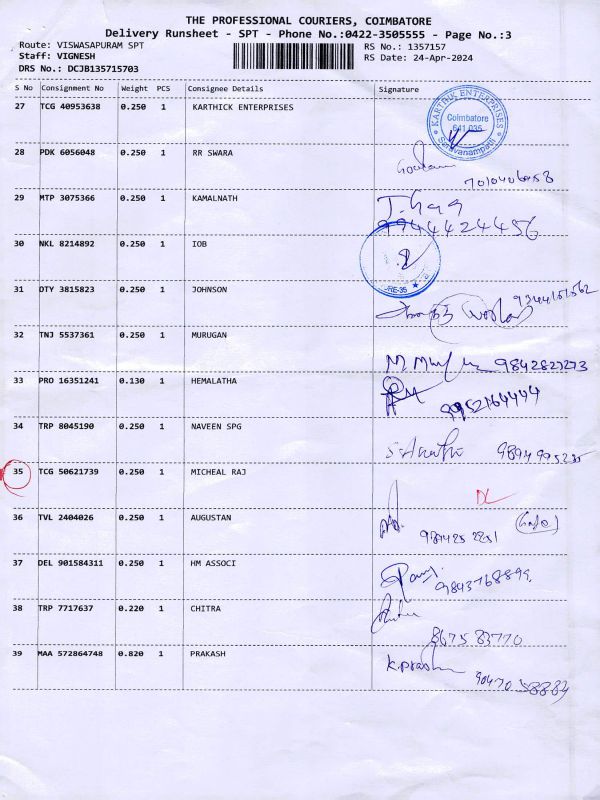 THE PROFESSIONAL COURIERS, COIMBATORE
Delivery Runsheet - SPT - Phone No.:0422-3505555 - Page No.:3
Route: VISWASAPURAM SPT
RS No.: 1357157
Staff: VIGNESH
RS Date: 24-Apr-2024
DRS No.: DCJB135715703
S No Consignment No Weight PCS Consignee Details Signature
27 TCG 40953638 0.250 1 KARTHICK ENTERPRISES
KARTHIK ENTERPRISES
Coimbatore
641 035
Saravanampatti
28 PDK 6056048 0.250 1 RR SWARA
29 MTP 3075366 0.250 1 KAMALNATH
9944424456
30 NKL 8214892 0.250 1 IOB
31 DTY 3815823 0.250 1 JOHNSON
32 TNJ 5537361 0.250 1 MURUGAN
9842827273
33 PRO 16351241 0.130 1 HEMALATHA
9952164444
34 TRP 8045190 0.250 1 NAVEEN SPG
35 TCG 50621739 0.250 1 MICHEAL RAJ
DL
36 TVL 2404026 0.250 1 AUGUSTAN
37 DEL 901584311 0.250 1 HM ASSOCI
38 TRP 7717637 0.220 1 CHITRA
39 MAA 572864748 0.820 1 PRAKASH
K.Prakash